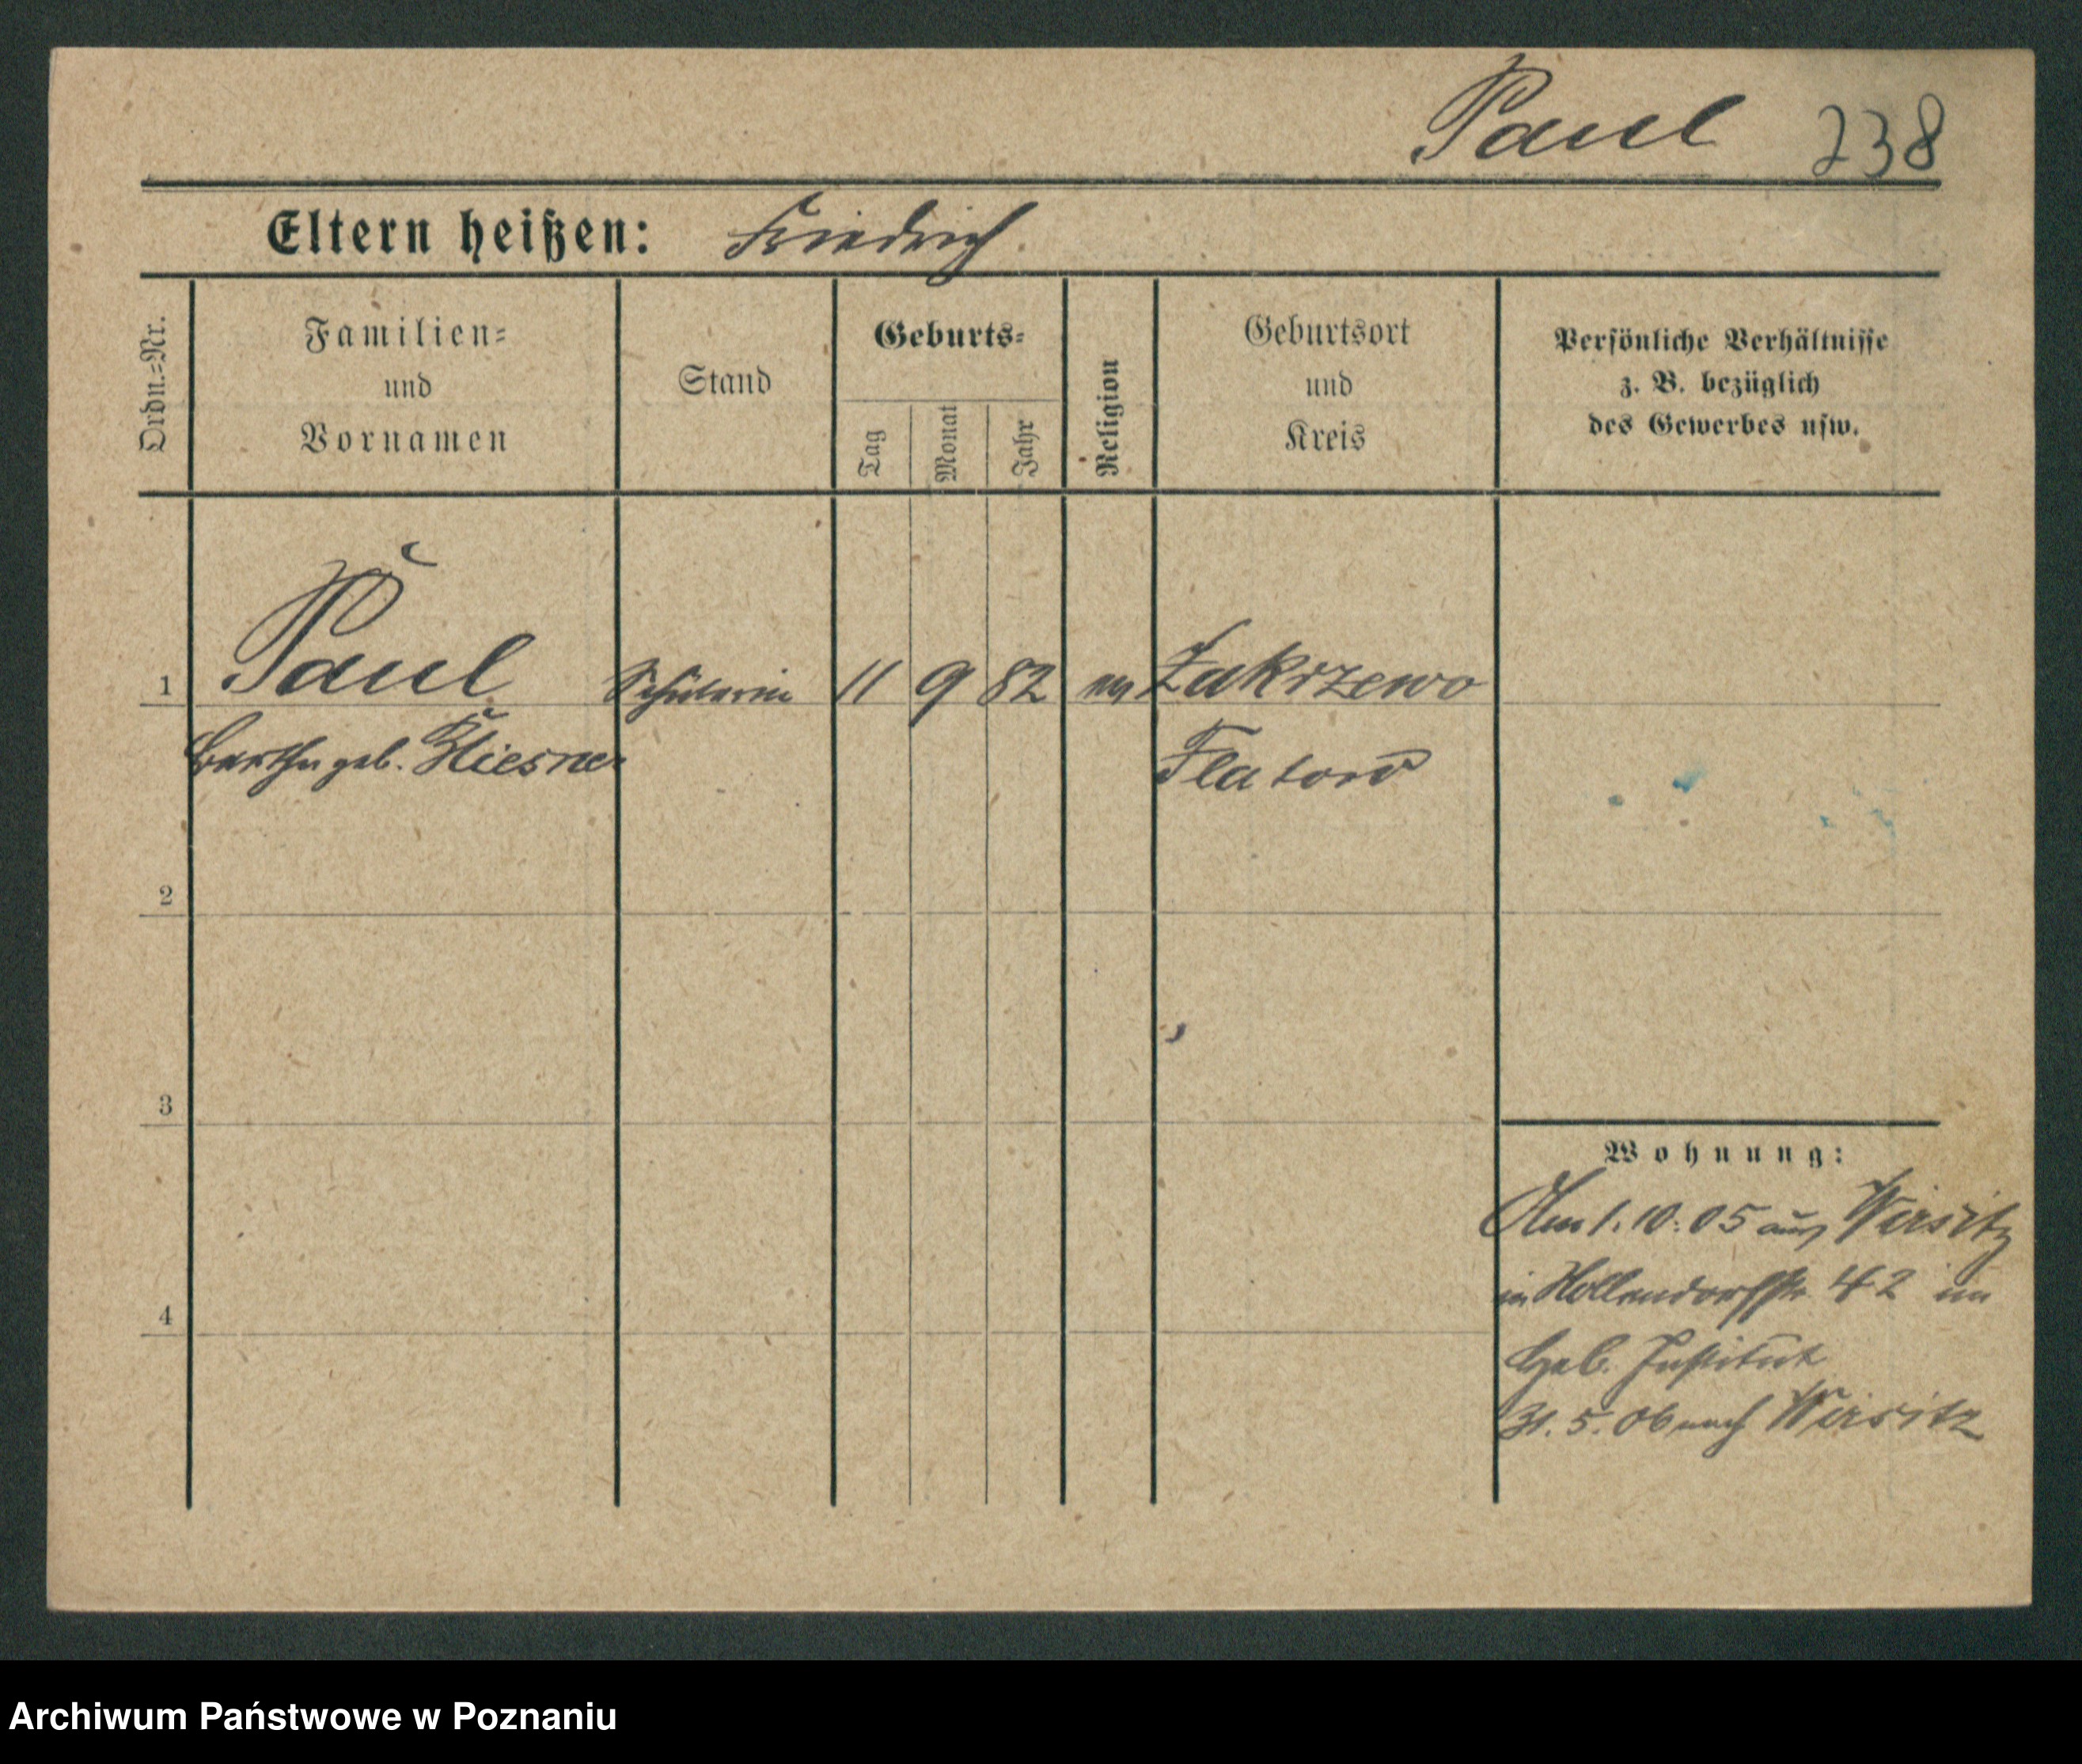 Paul 238
Eltern heißen: Friedrich
Ordn.-Nr.
Familien-
und
Vornamen
Stand
Geburts-
Tag
Monat
Jahr
Religion
Geburtsort
und
Kreis
Persönliche Verhältnisse
z. B. bezüglich
des Gewerbes usw.
1 Paul Schülerin 11 9 82 ev Zakrzewo
Bertha geb. Kiesner Flatow
2
3
Wohnung:
Am 1. 10. 05 aus Wirsitz
in 42 im
4
Heb. Institut
31. 5. 06 nach Wirsitz
Archiwum Państwowe w Poznaniu